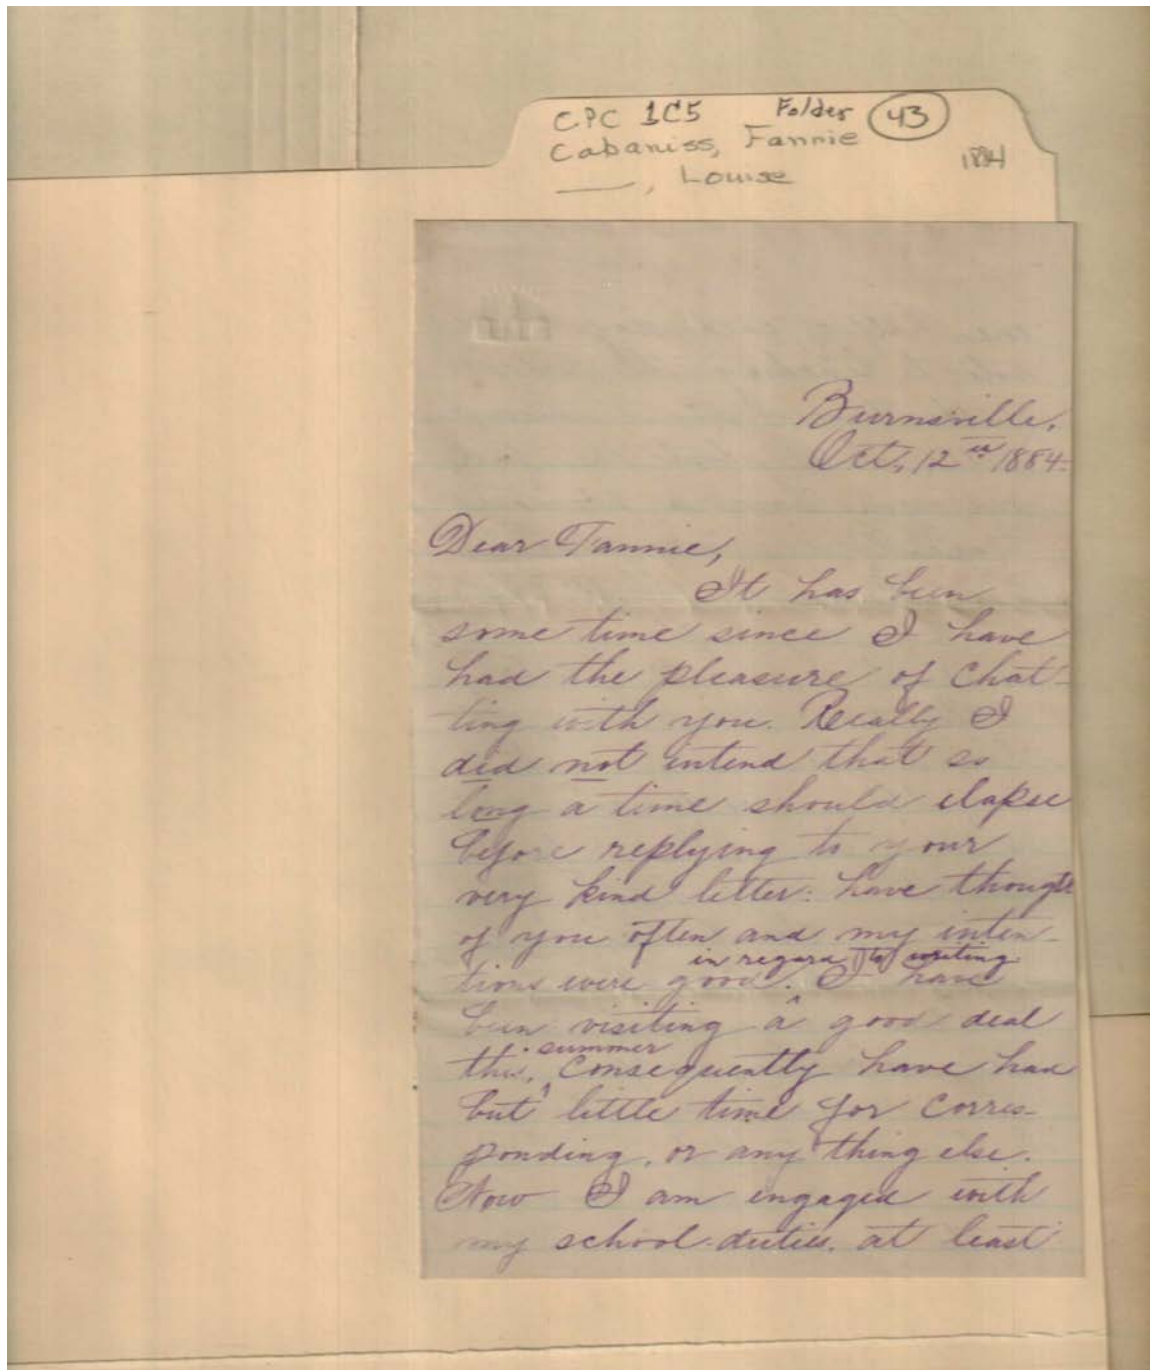 CPC 1C5 Folder 43
Cabaniss, Fannie
——, Louise
1884
Burnsville,
Oct, 12th 1884.
Dear Fannie,
It has been
some time since I have
had the pleasure of chat-
ting with you. Really I
did not intend that so
long a time should elapse
before replying to your
very kind letter: have thought
of you often and my inten-
in regard to writing
tions were good. ^ I have
been visiting a good deal
summer
this, ^ Consequently have had
but little time for corres-
ponding, or any thing else.
Now I am engaged with
my school-duties, at least